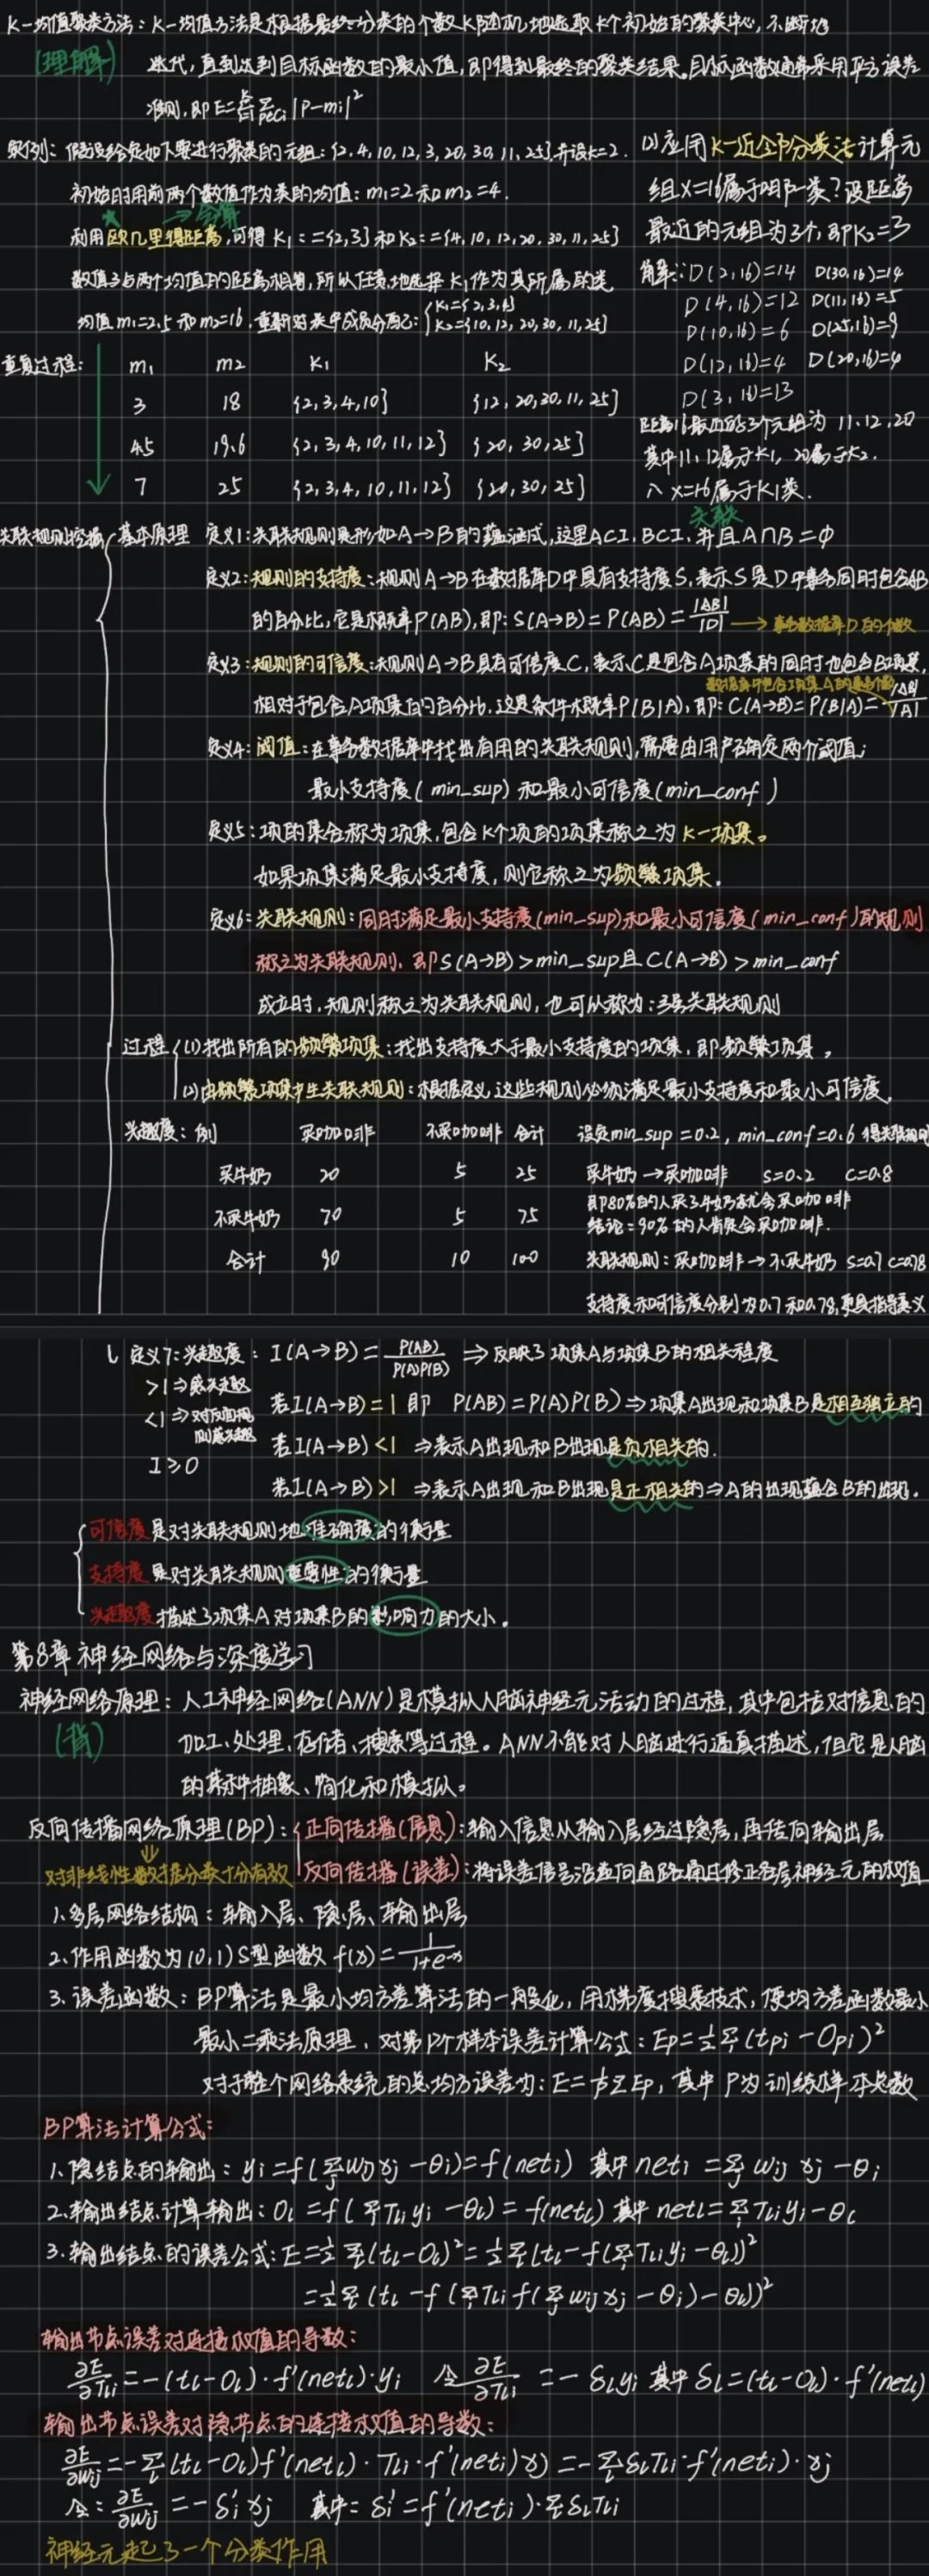 K-均值聚类方法：K-均值方法是根据最终分类的个数K随机地选取K个初始的聚类中心，不断地
(理解) 迭代，直到达到目标函数的最小值，即得到最终的聚类结果。目标函数通常采用平方误差
准则，即E=Σ(k, i=1)Σ(p∈Ci)|P-mi|²
举例：假设给定如下要进行聚类的元组：{2,4,10,12,3,20,30,11,25}并设k=2.
初始时用前两个数值作为类的均值：m₁=2和m₂=4.
★ →会算
利用欧几里得距离，可得K₁：={2,3}和K₂：={4,10,12,20,30,11,25}
数值3与两个均值的距离相等，所以任意地选择K₁作为其所属的类
均值m₁=2.5和m₂=16，重新对类中成员分配：{K₁={2,3,4} K₂={10,12,20,30,11,25}
重复过程： m₁ m₂ K₁ K₂
3 18 {2,3,4,10} {12,20,30,11,25}
4.5 19.6 {2,3,4,10,11,12} {20,30,25}
7 25 {2,3,4,10,11,12} {20,30,25}
(2)应用K-近邻分类法计算元
组X=16属于哪一类？设距离
最近的元组为3个，即K₂=3
解：D(2,16)=14 D(30,16)=14
D(4,16)=12 D(11,16)=5
D(10,16)=6 D(25,16)=9
D(12,16)=4 D(20,16)=4
D(3,16)=13
距离16最近的3个元组为11,12,20
其中11,12属于K₁，20属于K₂.
∴X=16属于K₁类.
关联
关联规则挖掘 基本原理 定义1：关联规则是形如A→B的蕴涵式，这里A⊂I，B⊂I，并且A∩B=∅
定义2：规则的支持度：规则A→B在数据库D中具有支持度S，表示S是D中事务同时包含AB
的百分比，它是概率P(AB)，即：S(A→B)=P(AB)=|AB|/|D| →事务数据库D的个数
定义3：规则的可信度：规则A→B具有可信度C，表示C是包含A项集的同时也包含B项集，
数据库中包含项集A的事务个数
相对于包含A项集的百分比，这是条件概率P(B|A)，即：C(A→B)=P(B|A)=|AB|/|A|
定义4：阈值：在事务数据库中找出有用的关联规则，需要由用户确定两个阈值；
最小支持度(min_sup)和最小可信度(min_conf)
定义5：项的集合称为项集，包含K个项的项集称之为K-项集。
如果项集满足最小支持度，则它称之为频繁项集.
定义6：关联规则：同时满足最小支持度(min_sup)和最小可信度(min_conf)的规则
称之为关联规则，即S(A→B)>min_sup且C(A→B)>min_conf
成立时，规则称之为关联规则，也可以称为：强关联规则
过程 (1)找出所有的频繁项集：找出支持度大于最小支持度的项集，即频繁项集。
(2)由频繁项集产生关联规则：根据定义，这些规则必须满足最小支持度和最小可信度。
兴趣度：例 买咖啡 不买咖啡 合计 设定min_sup=0.2，min_conf=0.6 得关联规则
买牛奶 20 5 25 买牛奶→买咖啡 S=0.2 C=0.8
即80%的人买了牛奶就会买咖啡
不买牛奶 70 5 75 结论=90%的人肯定会买咖啡.
合计 90 10 100 关联规则：买咖啡→不买牛奶 S=0.7 C=0.78
支持度和可信度分别为0.7和0.78，更具指导意义
定义7：兴趣度：I(A→B)=P(AB)/P(A)P(B) ⇒反映了项集A与项集B的相关程度
>1⇒感兴趣
若I(A→B)=1 即 P(AB)=P(A)P(B)⇒项集A出现和项集B是相互独立的
<1⇒对反面规则感兴趣
若I(A→B)<1 ⇒表示A出现和B出现是负相关的.
I≥0
若I(A→B)>1 ⇒表示A出现和B出现是正相关的⇒A的出现蕴含B的出现.
可信度是对关联规则地准确度的衡量
支持度是对关联规则重要性的衡量
兴趣度描述了项集A对项集B的影响力的大小。
第8章 神经网络与深度学习
神经网络原理：人工神经网络(ANN)是模拟人脑神经元活动的过程，其中包括对信息的
(背) 加工、处理、存储、搜索等过程。ANN不能对人脑进行逼真描述，但它是人脑
的某种抽象、简化和模拟。
反向传播网络原理(BP)：正向传播(信息)：输入信息从输入层经过隐层，再传向输出层
⇓
对非线性数据分类十分有效 反向传播(误差)：将误差信号沿逆向通路通过修正各层神经元的权值
1.多层网络结构：输入层、隐层、输出层
2.作用函数为(0,1)S型函数 f(x)=1/(1+e^-x)
3.误差函数：BP算法是最小均方差算法的一般化，用梯度搜索技术，使均方差函数最小
最小二乘法原理，对第P个样本误差计算公式：Ep=½Σi(tpi-Opi)²
对于整个网络系统的总均方误差为：E=1/pΣEp，其中P为训练样本总数
BP算法计算公式：
1.隐结点的输出：yi=f(Σj wij xj-θi)=f(neti) 其中neti=Σj wij xj-θi
2.输出结点计算输出：Ol=f(Σi Tli yi-θl)=f(netl) 其中netl=Σi Tli yi-θl
3.输出结点的误差公式：E=½Σl(tl-Ol)²=½Σl(tl-f(Σi Tli yi-θl))²
=½Σl(tl-f(Σi Tli f(Σj wij xj-θi)-θl))²
输出节点误差对连接权值的导数：
∂E/∂Tli=-(tl-Ol)·f'(netl)·yi 令∂E/∂Tli=-δl yi 其中δl=(tl-Ol)·f'(netl)
输出节点误差对隐节点的连接权值的导数：
∂E/∂wij=-Σl(tl-Ol)f'(netl)·Tli·f'(neti)xj=-Σl δl Tli·f'(neti)·xj
令：∂E/∂wij=-δi'xj 其中=δi'=f'(neti)·Σl δl Tli
神经元起了一个分类作用